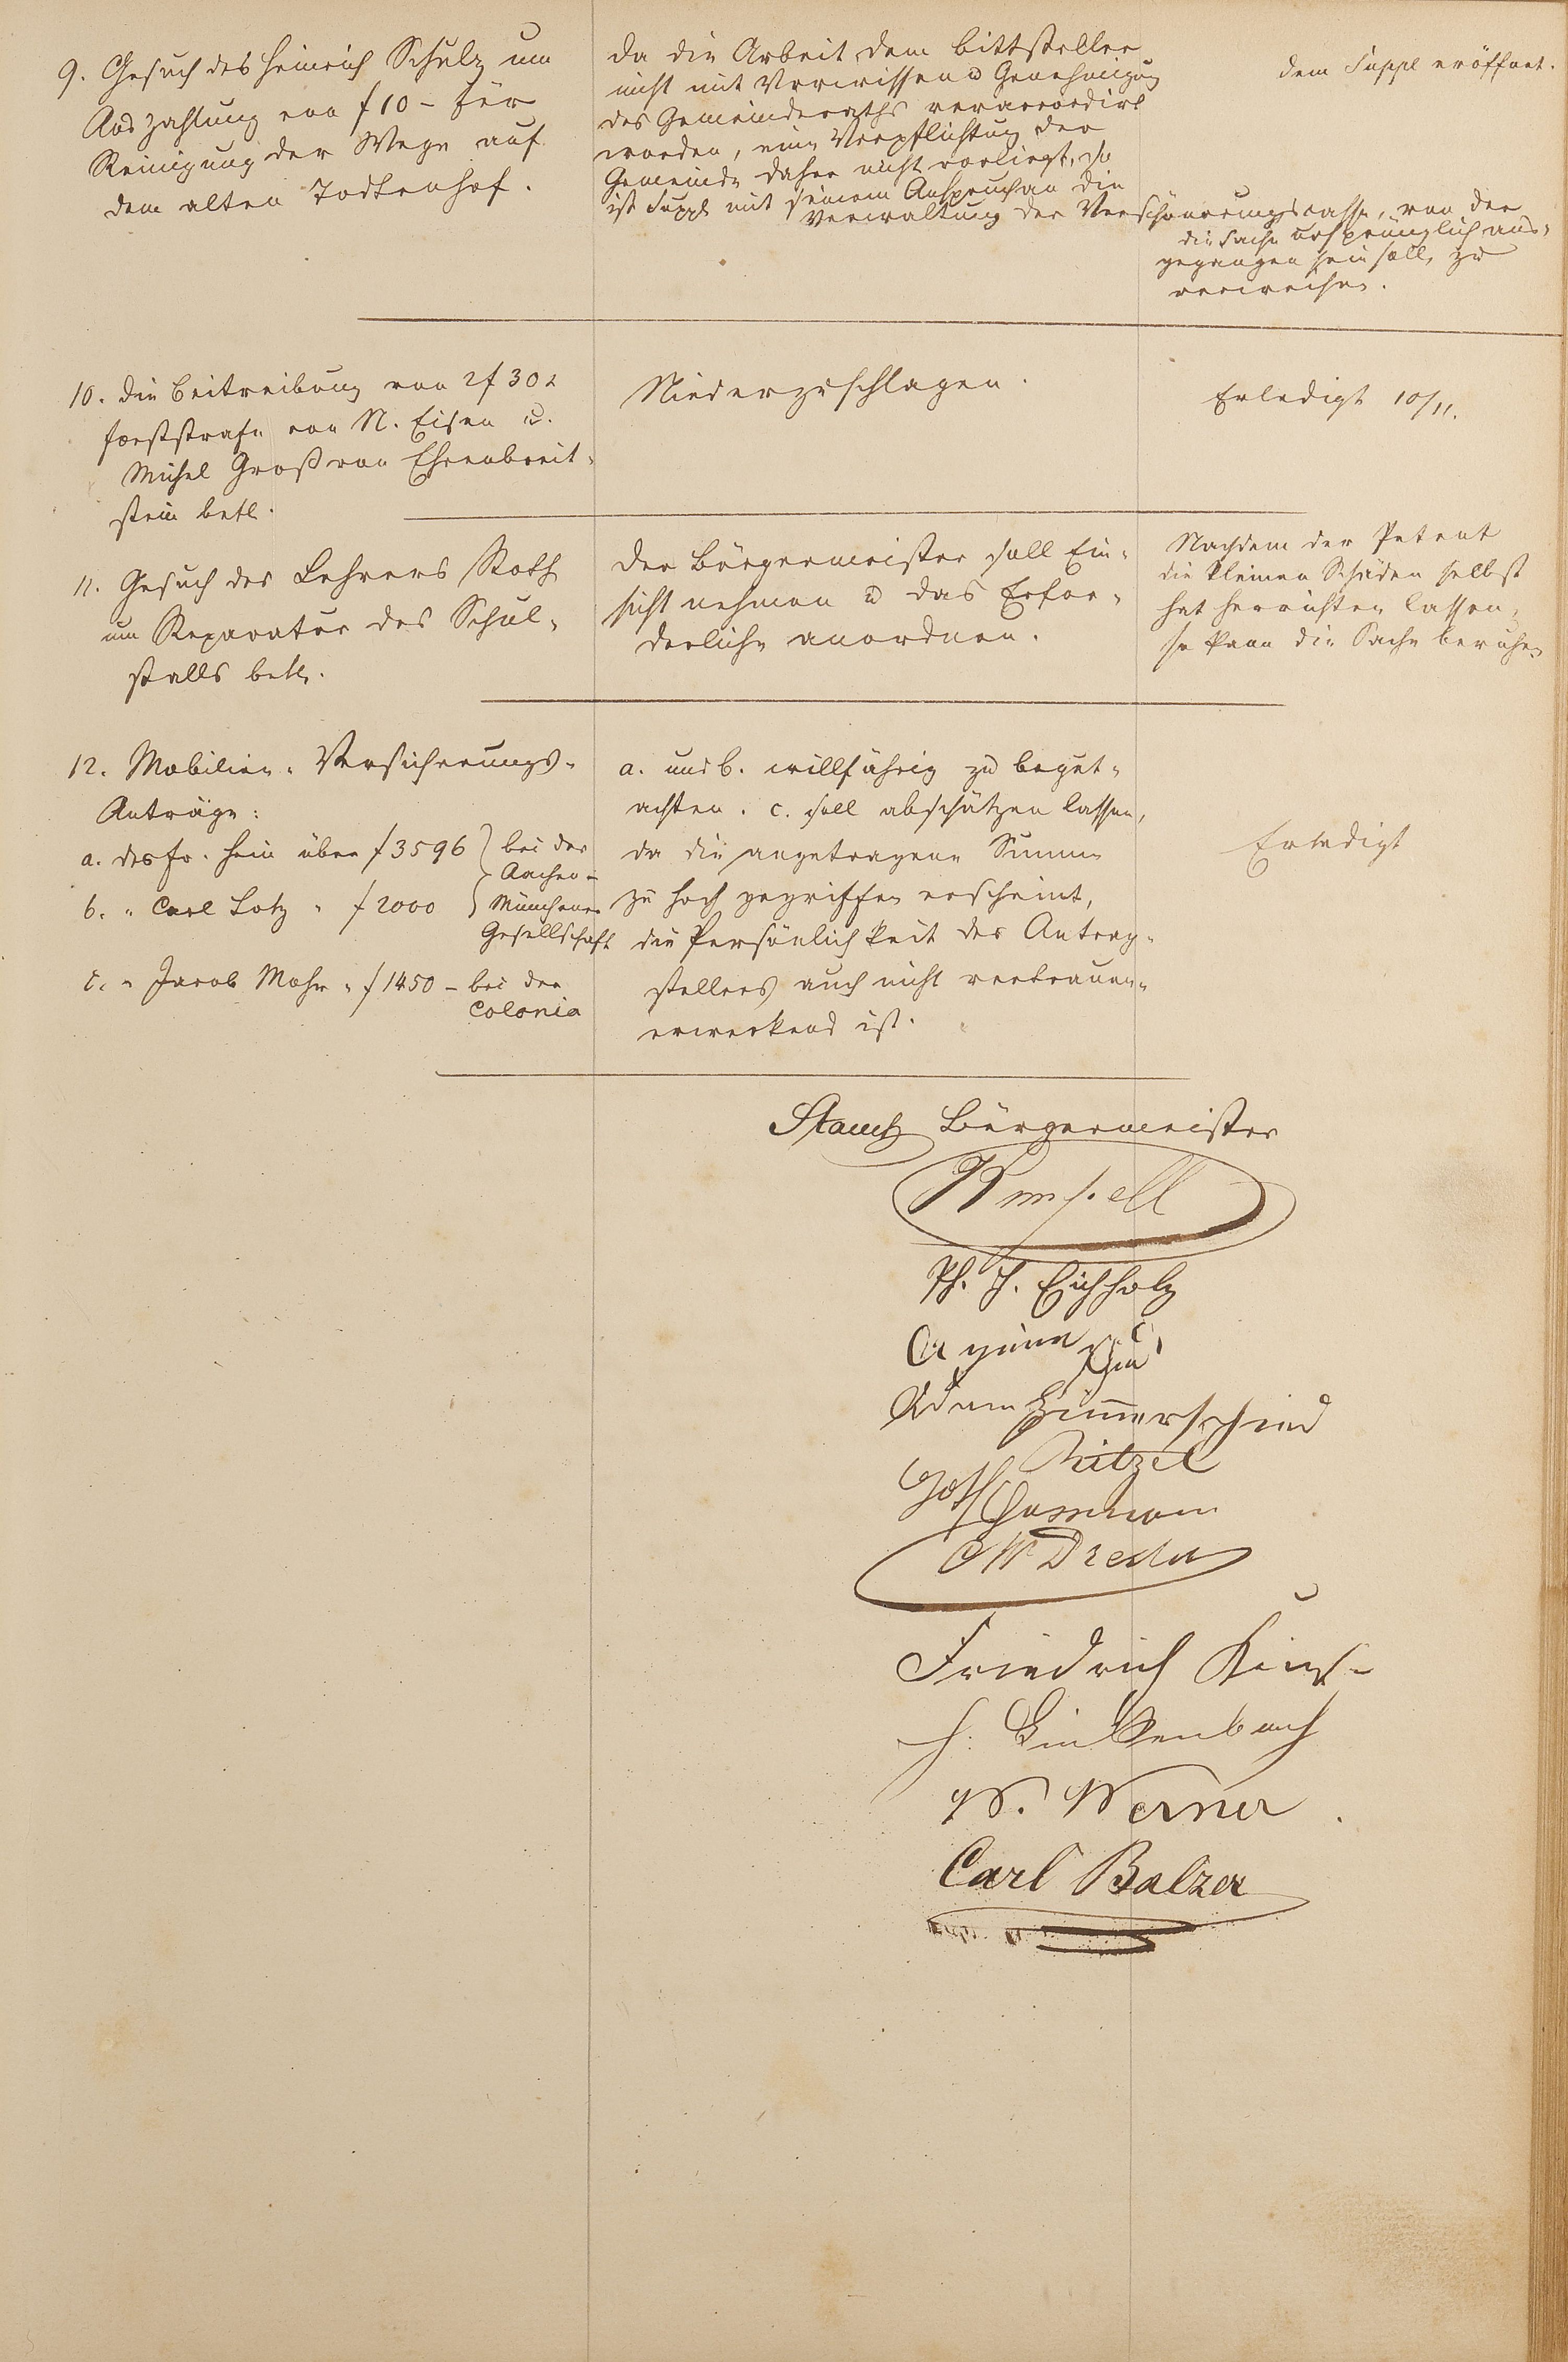 9. Gesuch des Heinrich Schulz um
Auszahlung von f 10 - für
Reinigung der Wege auf
dem alten Todtenhof.
da die Arbeit dem Bittsteller
nicht mit Vorwissen u Genehmigung
des Gemeinderaths veraccordirt
worden, eine Verpflichtung der
Gemeinde daher nicht vorliegt, so
ist Suppl mit seinem Anspruch an die
Verwaltung der Verschönerungscasse, von der
die Sache ursprünglich aus-
gegangen sein soll, zu
verweisen.
dem Suppl eröffnet.
10. Die Beitreibung von 2 f 30 x
Forststrafe von N. Eisen u.
Michel Groß von Ehrenbreit-
stein betr.
Niederzuschlagen.
Erledigt 10/11.
11. Gesuch des Lehrers Roth
um Reparatur des Schul-
stalls betr.
Der Bürgermeister soll Ein-
sicht nehmen u das Erfor-
derliche anordnen.
Nachdem der Petent
die kleinen Schäden selbst
hat herrichten lassen,
so kann die Sache beruhen
12. Mobilien-Versicherungs-
Anträge:
a. des Fr. Hein über f 3596 bei der
Aachen-
b. " Carl Lotz " f 2000 Münchener
Gesellschaft
c. " Jacob Mohr " f 1450 - bei der
Colonia
a. und b. willfährig zu begut-
achten. c. soll abschätzen lassen,
da die angetragene Summe
zu hoch gegriffen erscheint,
die Persönlichkeit des Antrag-
stellers auch nicht vertrauen-
erweckend ist.
Erledigt
Bürgermeister
Ph. H. Eichholz
Adam Zimmerschied
Ritzel
Friedrich
H. Linkenbach
W. Werner.
Carl Balzer